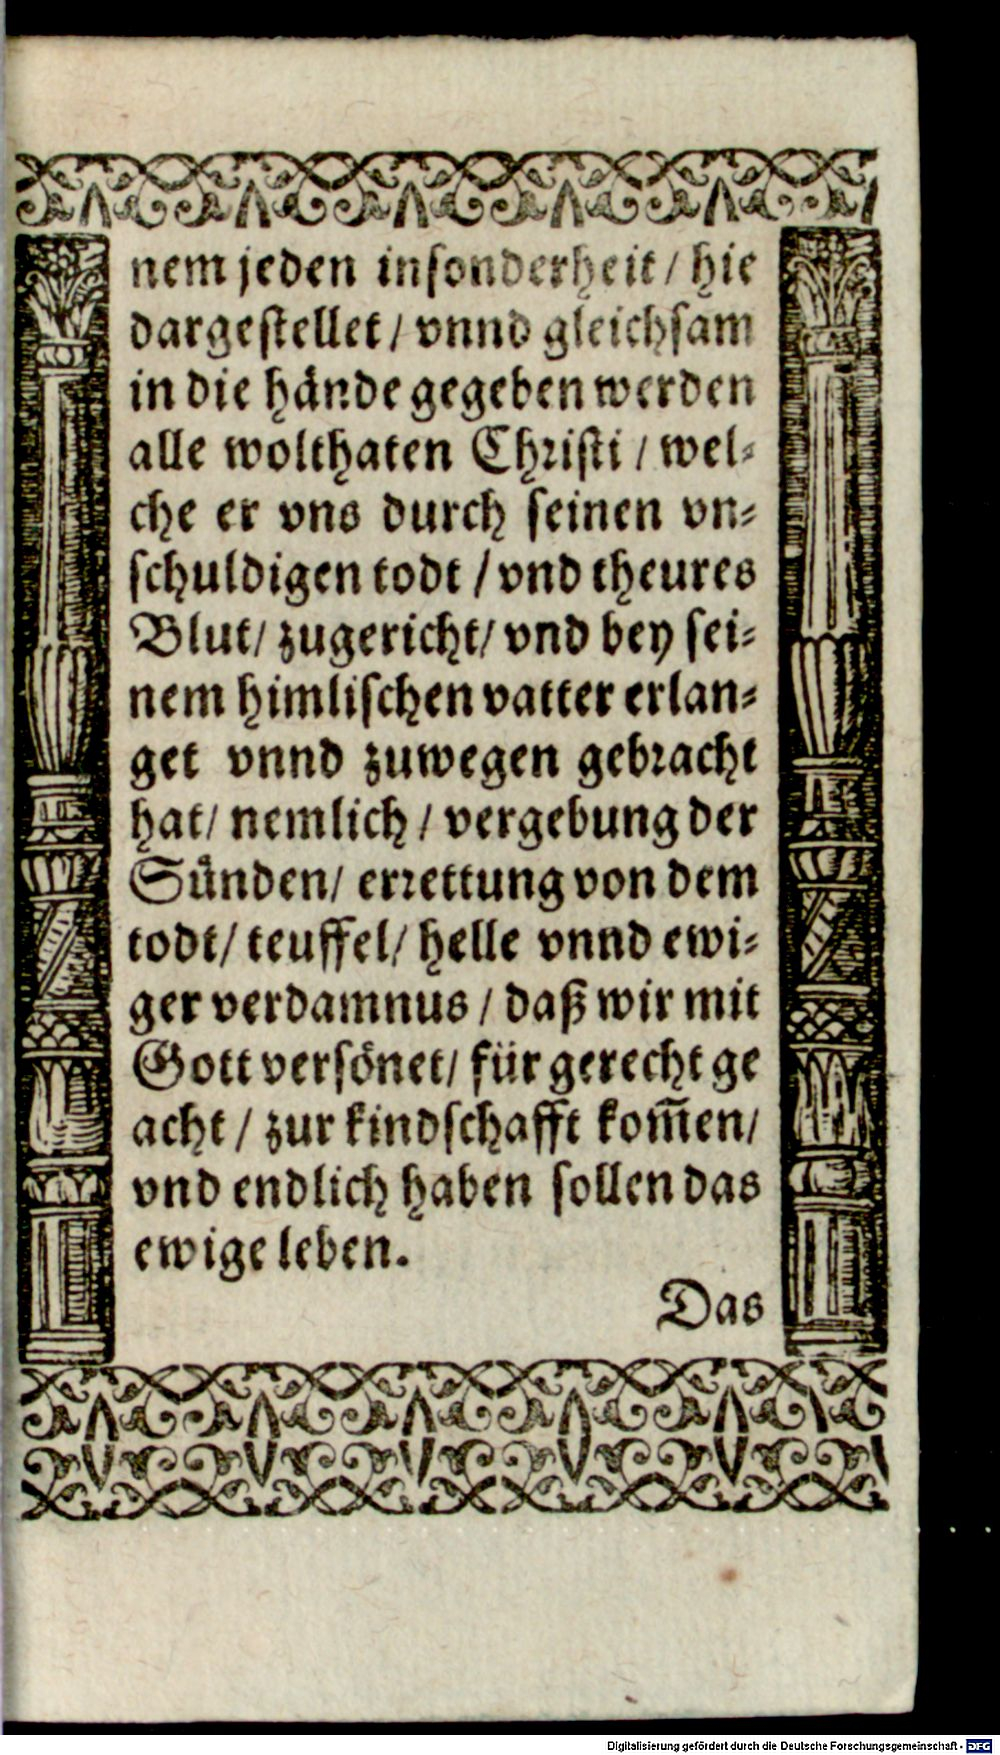 nem jeden inſonderheit / hie
dargeſtellet / vnnd gleichſam
in die hände gegeben werden
alle wolthaten Chriſti / wel⸗
che er vns durch ſeinen vn⸗
ſchuldigen todt / vnd theures
Blut / zugericht / vnd bey ſei⸗
nem himliſchen vatter erlan⸗
get vnnd zuwegen gebꝛacht
hat / nemlich / vergebung der
Sünden / erꝛettung von dem
todt / teuffel / helle vnnd ewi⸗
ger verdamnus / daß wir mit
Gott verſönet / für gerecht ge
acht / zur kindſchafft kom̅en /
vnd endlich haben ſollen das
ewige leben.
Das
Digitalisierung gefördert durch die Deutsche Forschungsgemeinschaft - DFG